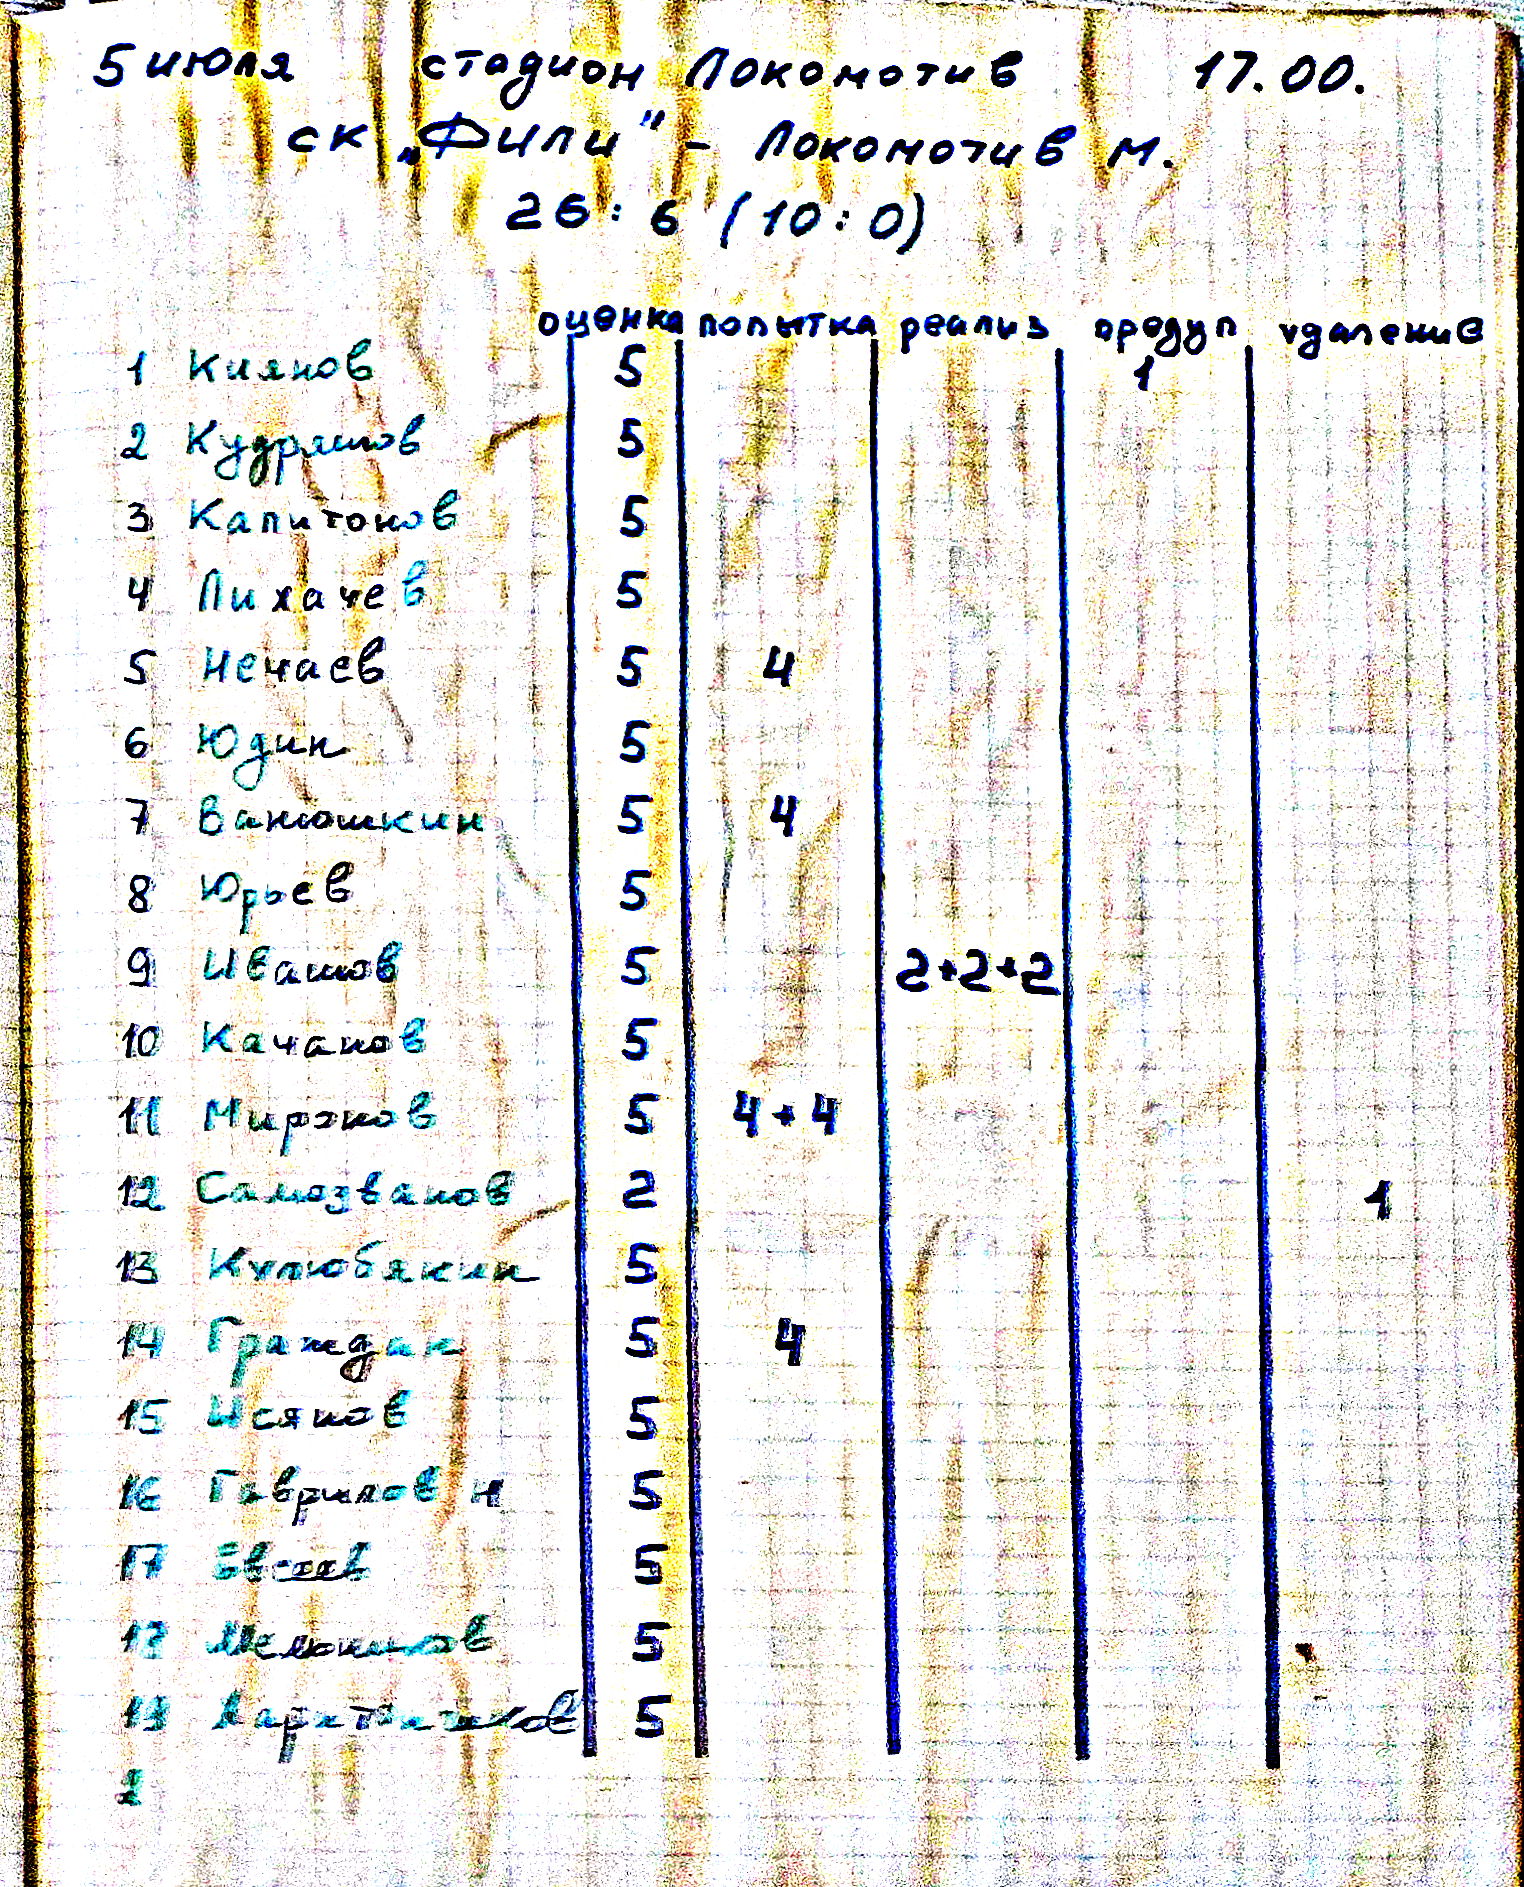 5 июля стадион Локомотив 17.00.
ск „Фили" - Локомотив м.
26 : 6 (10 : 0)
оценка попытка реализ предуп удаление
1 Киянов 5 1
2 Кудряшов 5
3 Капитонов 5
4 Лихачев 5
5 Нечаев 5 4
6 Юдин 5
7 Ванюшкин 5 4
8 Юрьев 5
9 Ивашов 5 2+2+2
10 Качанов 5
11 Миронов 5 4+4
12 Самозванов 2 1
13 Кулюбякин 5
14 Граждан 5 4
15 Исянов 5
16 Гаврилов Н 5
17 5
18 Мельников 5
19 5